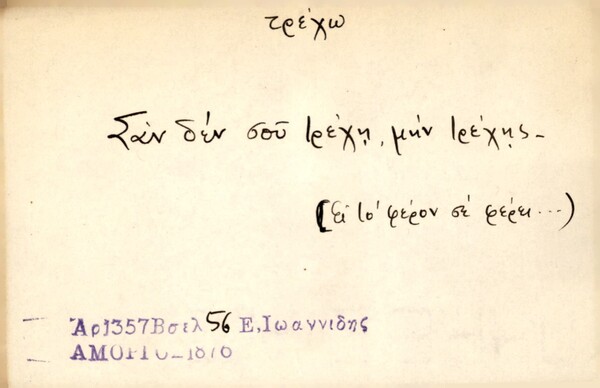 τρέχω
Σὰν δέν σοῦ τρέχῃ, μήν τρέχῃς -
(Εἰ τό φέρον σέ φέρει...)
Ἀρ1357Βσελ 56 Ε,Ιωαννιδης
ΑΜΟΡΓΟ_1876